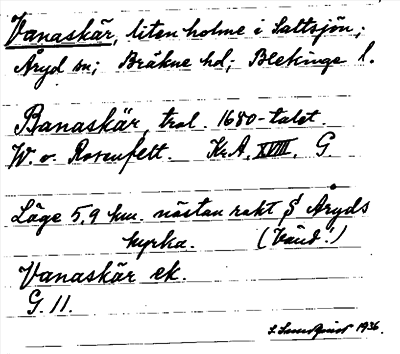 Vanaskär, liten holme i Saltsjön;
Åryd sn; Bräkne hd; Blekinge l.
Banaskär, trol. 1680-talet.
W. v. Rosenfelt. Kr.A. XVIII. G.
Läge 5,9 km. nästan rakt S Åryds
kyrka. (Vänd!)
Vanaskär ek.
G. 11.
1936.